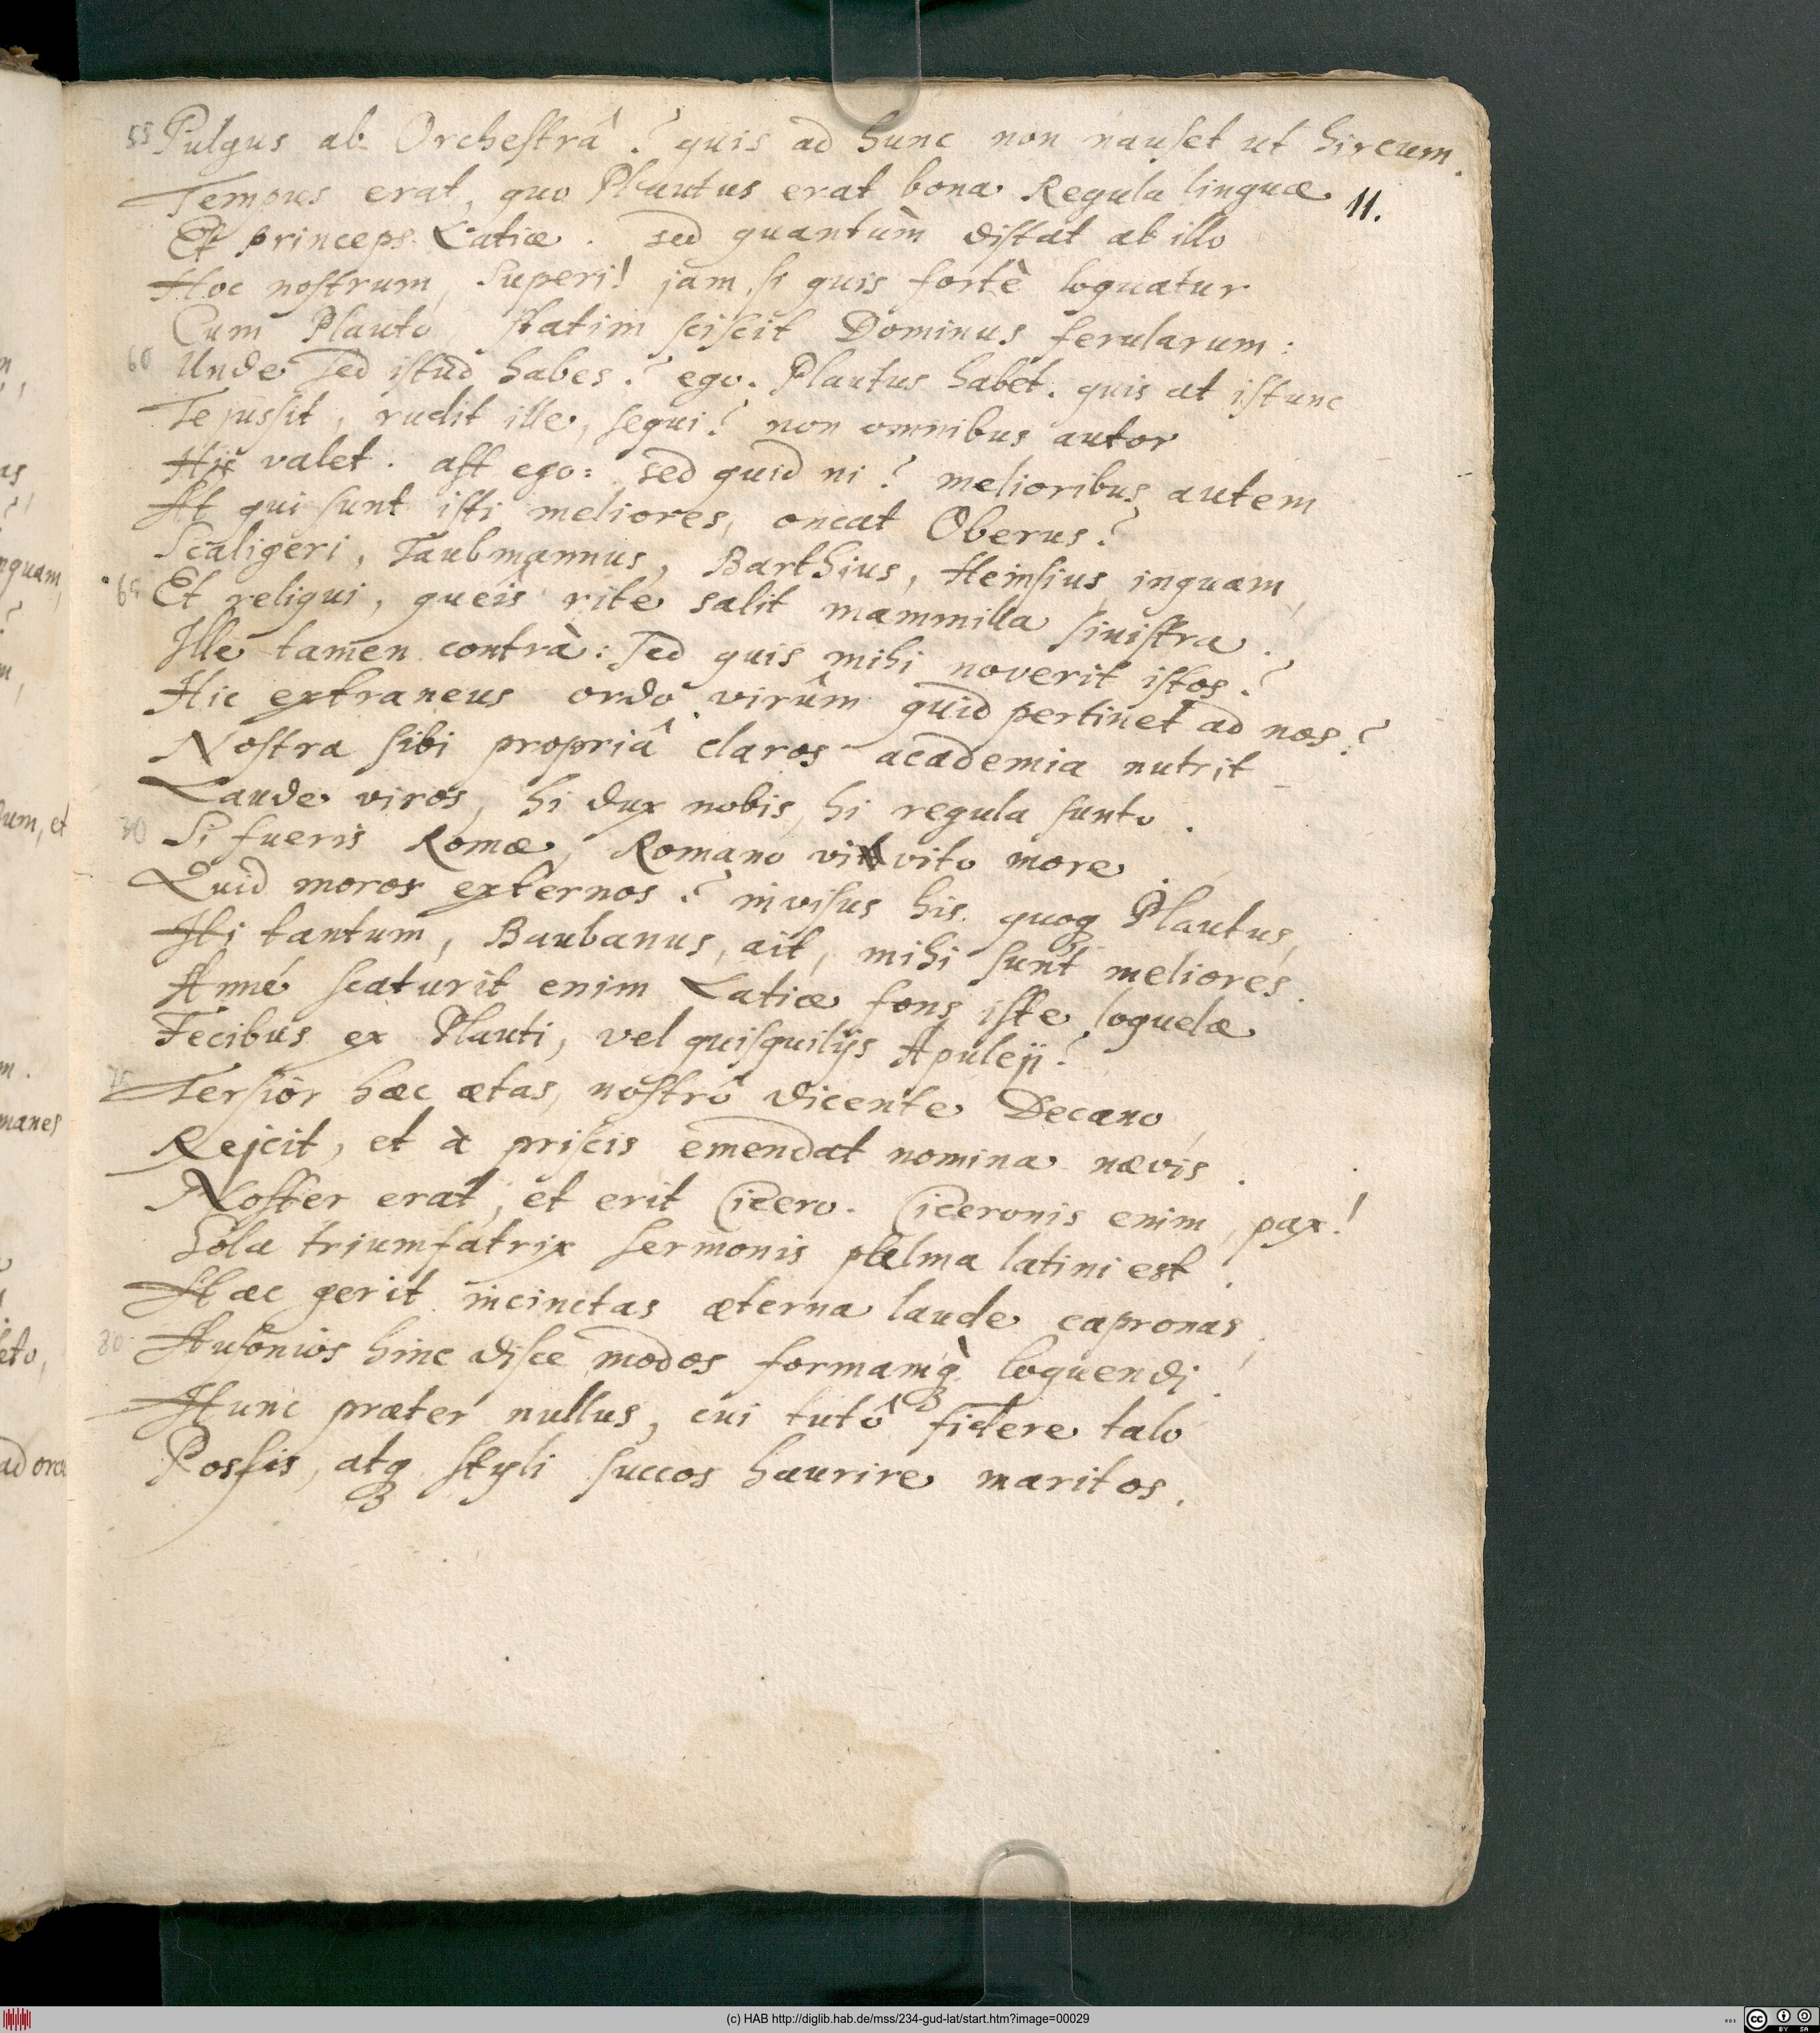 55 Pulgus ab Orchestrâ? quis ad hunc non nauset ut hircum.
Tempus erat, quo Plautus erat bona Regula linguæ
11.
Et princeps Latiæ. sed quantùm distat ab illo
Hoc nostrum, Superi! jam si quis fortè loquatur
Cum Plauto, statim sciscit Dominus ferularum:
60 Unde sed istud habes? ego. Plautus habet. quis at istunc
Te jussit, rudit ille, sequi? non omnibus autor
Hic valet. ast ego: sed quid ni? melioribus autem
At qui sunt isti meliores, oncat Oberus?
Scaligeri, Taubmannus, Barthius, Heinsius inquam,
65 Et reliqui, queis rite salit mammilla sinistra.
Ille tamen contrà: Sed quis mihi noverit istos?
Hic extraneus ordo virûm quid pertinet ad nos?
Nostra sibi propriâ claros academia nutrit
Laude viros, hi dux nobis, hi regula sunto.
70 Si fueris Romæ, Romano vivito more.
Quid moror externos? invisus his quoq Plautus,
Hi tantum, Baubanus, ait, mihi sunt meliores.
Anné scaturit enim Latiæ fons iste loquelæ
Fecibus ex Plauti, vel quisquilijs Apuleji?
75 Tersior hæc ætas, nostrô dicente Decano,
Rejcit, et à priscis emendat nomina nævis.
Noster erat, et erit Cicero. Ciceronis enim, pax!
Sola triumfatrix sermonis palma latini est.
Hæc gerit incinctas æterna laude capronas,
80 Ausonios hinc disce modos formamq loquendi!
Hunc præter nullus, cui tutô fidere talo
Possis, atq styli succos haurire maritos.
(c) HAB http://diglib.hab.de/mss/234-gud-lat/start.htm?image=00029